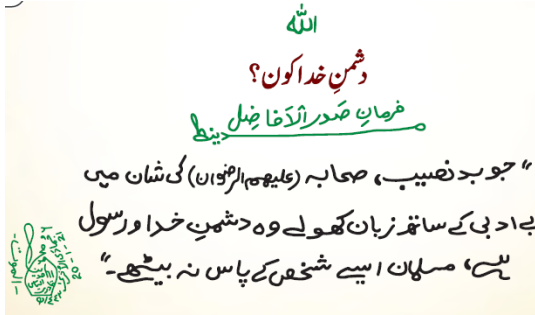 اللہ
دشمنِ خدا کون؟
فرمانِ صَدرُ الْاَفاضِل
"جو بد نصیب، صحابہ (علیهم الرضوان) کی شان میں
بے ادبی کے ساتھ زبان کھولے وہ دشمنِ خدا و رسول
ہے، مسلمان ایسے شخص کے پاس نہ بیٹھے۔"